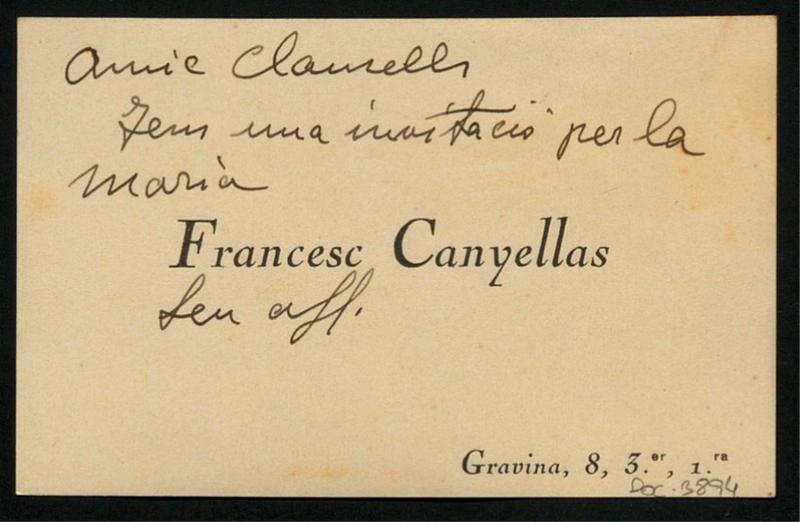 Amic Clausells
Tens una invitació per la
Maria
Francesc Canyellas
Seu aff.
Gravina, 8, 3.er, 1.ra
Doc. 3894